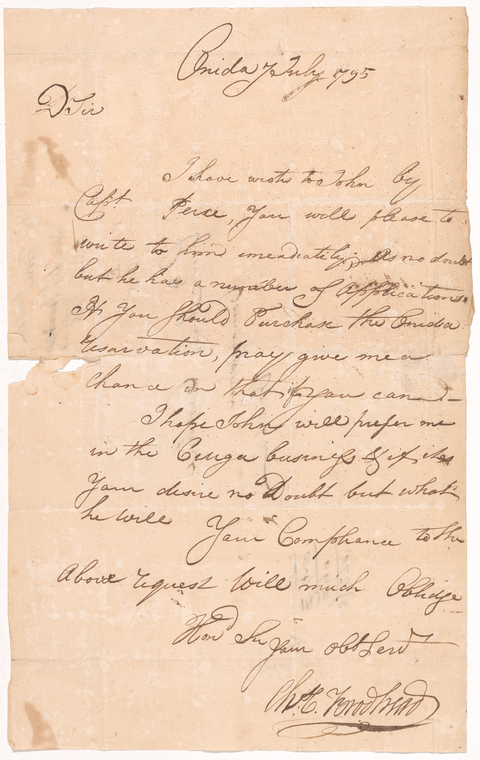 Onida 7 July 1795
D Sir
I have wrote to John by
Capt Perse, You will please to
write to him imeadiately, As no doubt
but he has a number of Applications
If You Should Purchase the Onida
resarvation, pray give me a
chance in that if you can —
I hope John will prefer me
in the Cauga business & if its
Your desire no Doubt but what
he will Your Compliance to the
Above request Will much Oblidge
Hond Sir
Your obt Servt
Chs. C. Brodhead